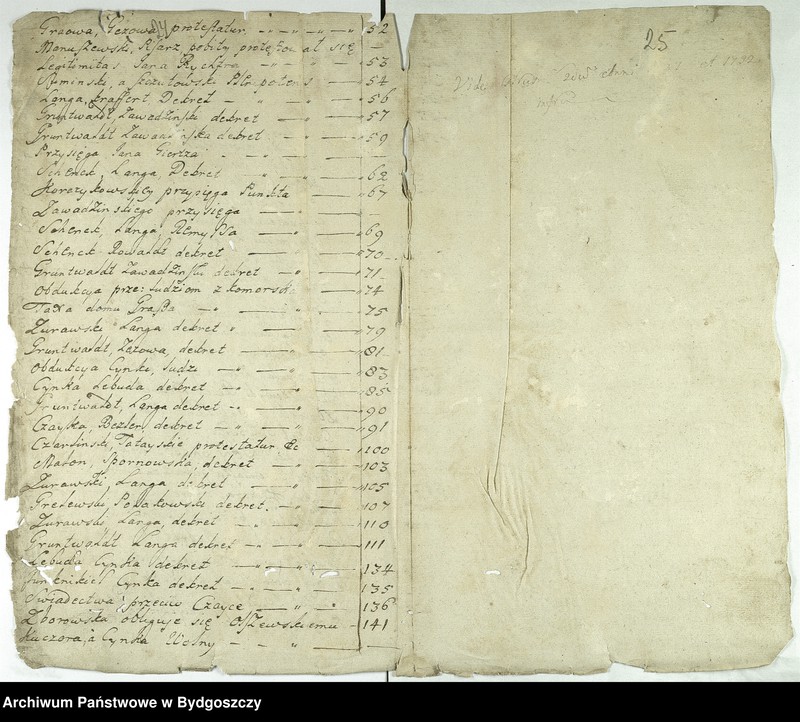 Graowa, Gezowa, protestatur — 52
Monuszewski, Pisarz, pobity protestował się —
Legitimitas Jana Rychtra — 53
Sumiński, a Szczutowski Plripotens — 54
Langa, Graffert Dekret — 56
Gruntwaldt, Zawadziński dekret — 57
Gruntwaldt Zawadzinska dekret — 59
Przysięga Jana Giertza —
Schenck, Langa, Dekret — 62
Korczykowskiey przysięga Punkta — 67
Zawadzińskiego przysięga —
Schenck, Langa, Remyssa — 69
Schenck Rowaldt dekret — 70
Gruntwaldt Zawadziński dekret — 71
Obdukcya prze: ludziom z komorską — 74
Taxa domu Graffa — 75
Żurawski Langa dekret — 79
Gruntwaldt, Zezowa, dekret — 81
Obdukcya Cynki, ludzi — 83
Cynka Lebuda dekret — 85
Gruntwaldt, Langa dekret — 90
Czayka, Bezler, dekret — 91
Czarliński, Tatayskie protestatur &c — 100
Maton, Spornowska, dekret — 103
Żurawski, Langa dekret — 105
Grelewski, Polakowski dekret — 107
Żurawski Langa, dekret — 110
Gruntwaldt Langa dekret — 111
Lebuda Cynka dekret — 134
Cynka dekret — 135
Świadectwa przeciw Czayce — 136
Zborowska obliguje się Olszewskiemu — 141
Kuczora, a Cynka Wolny —
25
Archiwum Państwowe w Bydgoszczy